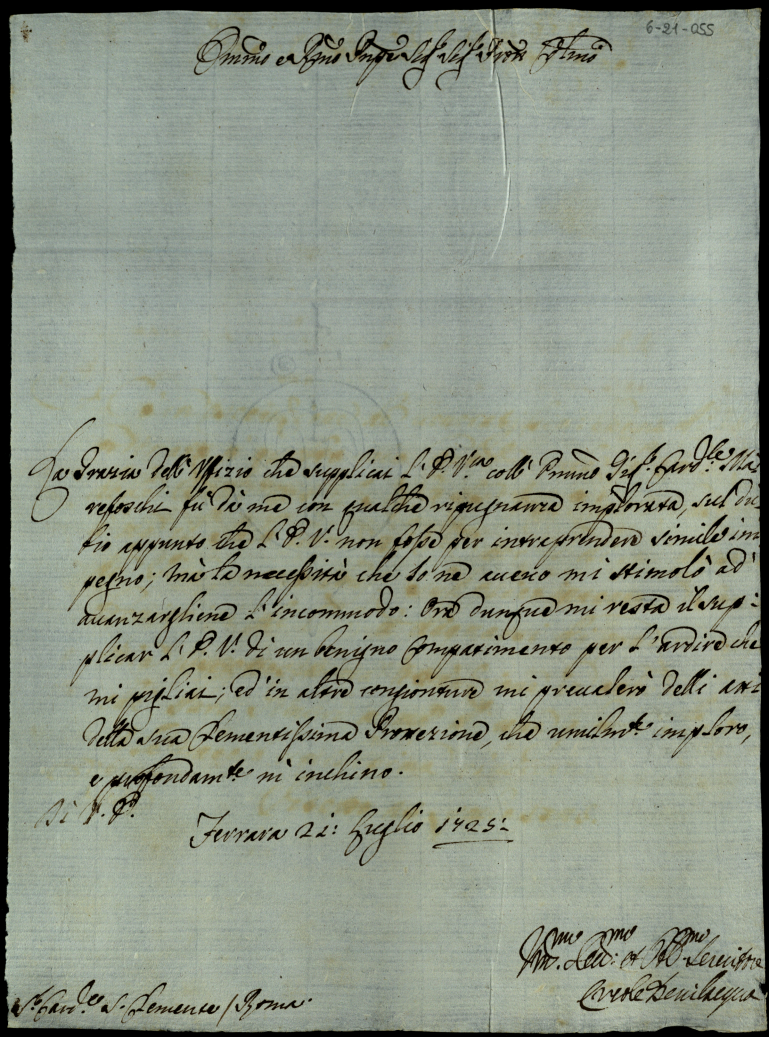 6-21-055
Emmo e Rmo Pnpe Sig.r Sig.r Pron Colmo
La Grazia dell' Uffizio che supplicai L' E. V.ra coll' Emmo Sig.r Card.le Ma=
refoschi fù dà me con qualche ripugnanza implorata, sul du=
bio appunto che L' E. V. non fosse per intraprendere simile im
pegno; mà la necessità che Io ne aveno mi stimolò ad'
avanzargliene L' incommodo: Ora dunque mi resta il sup=
plicar L' E. V. di un benigno Compatimento per L' ardire che
mi pigliai; ed' in altre congionture mi prevalerò delli atti
della sua Clementissima Protezione, che umilm.te imploro,
e profondam.te m' inchino.
Di V. E.
Ferrara 21: Luglio 1725:
Um.mo Dev:mo et Obb.mo Servitore
Ercole Bevilacqua
S.r Card.le S. Clemente / Roma.